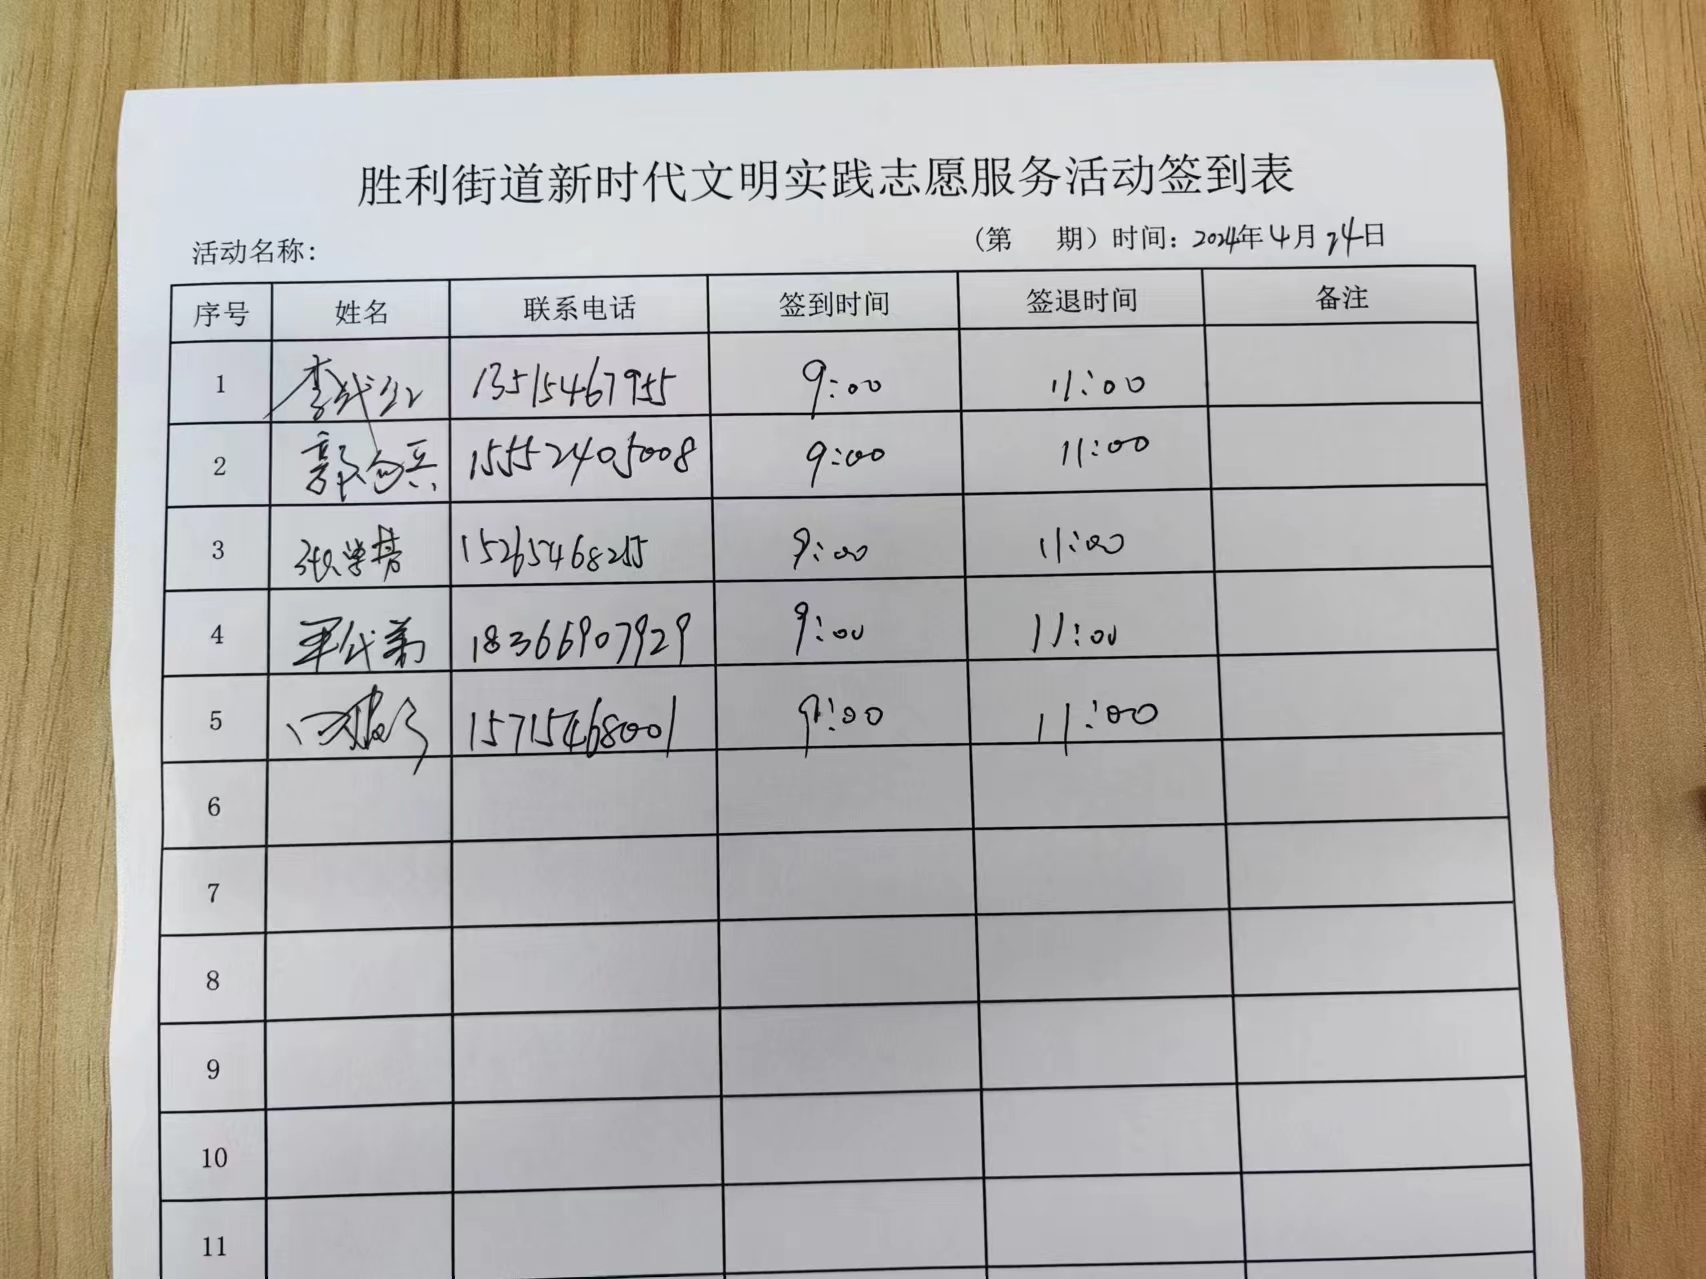 胜利街道新时代文明实践志愿服务活动签到表
活动名称: (第 期) 时间: 2024年4月24日
序号 姓名 联系电话 签到时间 签退时间 备注
1 李代红 13515467955 9:00 11:00
2 郭向兵 15552405008 9:00 11:00
3 张学芬 15265468255 9:00 11:00
4 18366907929 9:00 11:00
5 15715468001 9:00 11:00
6
7
8
9
10
11